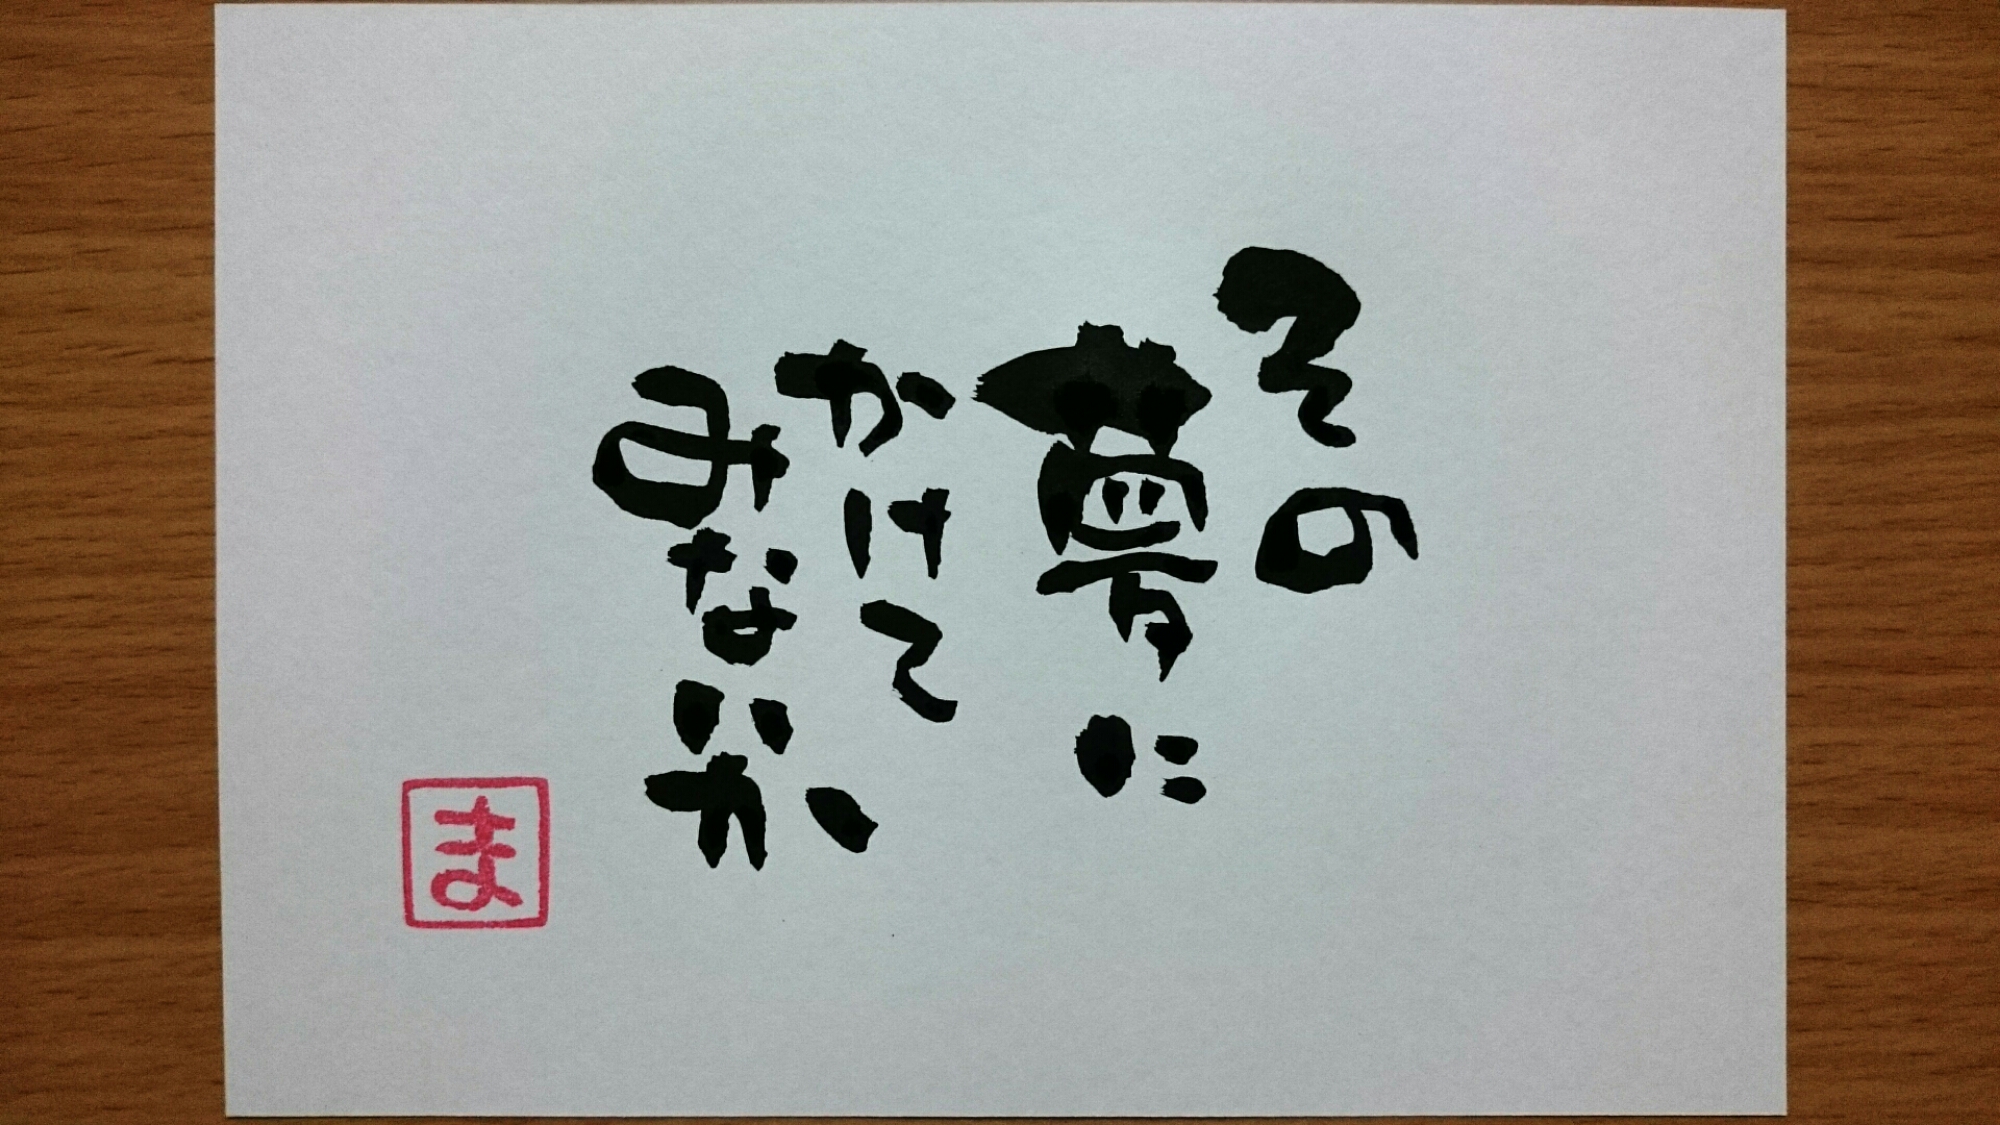 その
夢に
かけて
みないか
ま